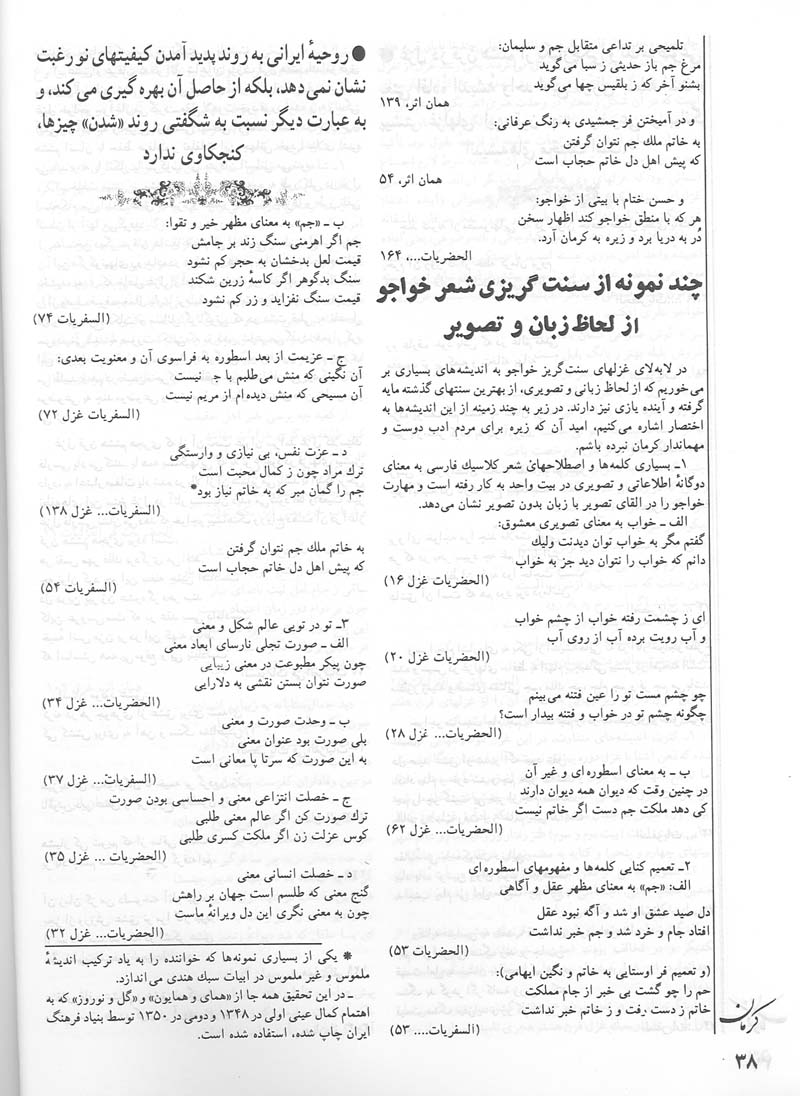 تلمیحی بر تداعی متقابل جم و سلیمان:
مرغ جم باز حدیثی ز سبا می‌گوید
بشنو آخر که ز بلقیس چها می‌گوید
همان اثر، ۱۳۹
و در آمیختن فر جمشیدی به رنگ عرفانی:
به خاتم ملك جم نتوان گرفتن
که پیش اهل دل خاتم حجاب است
همان اثر، ۵۴
و حسن ختام با بیتی از خواجو:
هر که با منطق خواجو کند اظهار سخن
دُر به دریا برد و زیره به کرمان آرد.
الحضریات....، ۱۶۴
چند نمونه از سنت گریزی شعر خواجو
از لحاظ زبان و تصویر
در لابه‌لای غزلهای سنت‌گریز خواجو به اندیشه‌های بسیاری بر
می‌خوریم که از لحاظ زبانی و تصویری، از بهترین سنتهای گذشته مایه
گرفته و آینده یازی نیز دارند. در زیر به چند زمینه از این اندیشه‌ها به
اختصار اشاره می‌کنیم، امید آن که زیره برای مردم ادب دوست و
مهماندار کرمان نبرده باشم.
۱ــ بسیاری کلمه‌ها و اصطلاحهای شعر کلاسیك فارسی به معنای
دوگانهٔ اطلاعاتی و تصویری در بیت واحد به کار رفته است و مهارت
خواجو را در القای تصویر با زبان بدون تصویر نشان می‌دهد.
الف ـ خواب به معنای تصویری معشوق:
گفتم مگر به خواب توان دیدنت ولیك
دانم که خواب را نتوان دید جز به خواب
(الحضریات غزل ۱۶)
ای ز چشمت رفته خواب از چشم خواب
و آب رویت برده آب از روی آب
(الحضریات غزل ۲۰)
چو چشم مست تو را عین فتنه می‌بینم
چگونه چشم تو در خواب و فتنه بیدار است؟
(الحضریات... غزل ۲۸)
ب ـ به معنای اسطوره‌ای و غیر آن
در چنین وقت که دیوان همه دیوان دارند
کی دهد ملکت جم دست اگر خاتم نیست
(الحضریات... غزل ۶۲)
۲ـ تعمیم کنایی کلمه‌ها و مفهومهای اسطوره‌ای
الف: «جم» به معنای مظهر عقل و آگاهی
دل صید عشق او شد و آگه نبود عقل
افتاد جام و خرد شد و جم خبر نداشت
(الحضریات غزل ۵۳)
(و تعمیم فر اوستایی به خاتم و نگین ایهامی):
جم را چو گشت بی خبر از جام مملکت
خاتم ز دست رفت و ز خاتم خبر نداشت
(السفریات.... ۵۳)
● روحیهٔ ایرانی به روند پدید آمدن کیفیتهای نو رغبت
نشان نمی‌دهد، بلکه از حاصل آن بهره گیری می کند، و
به عبارت دیگر نسبت به شگفتی روند «شدن» چیزها،
کنجکاوی ندارد
ب ـ «جم» به معنای مظهر خیر و تقوا:
جم اگر اهرمنی سنگ زند بر جامش
قیمت لعل بدخشان به حجر کم نشود
سنگ بدگوهر اگر کاسهٔ زرین شکند
قیمت سنگ نفزاید و زر کم نشود
(السفریات ۷۴)
ج ـ عزیمت از بعد اسطوره به فراسوی آن و معنویت بعدی:
آن نگینی که منش می‌طلبم با نیست
آن مسیحی که منش دیده‌ام از مریم نیست
(السفریات غزل ۷۲)
د ـ عزت نفس، بی نیازی و وارستگی
ترك مراد چون ز کمال محبت است
جم را گمان مبر که به خاتم نیاز بود*
(السفریات... غزل ۱۳۸)
به خاتم ملك جم نتوان گرفتن
که پیش اهل دل خاتم حجاب است
(السفریات ۵۴)
۳ـ تو در تویی عالم شکل و معنی
الف ـ صورت تجلی نارسای ابعاد معنی
چون پیکر مطبوعت در معنی زیبایی
صورت نتوان بستن نقشی به دلارایی
(الحضریات... غزل ۳۴)
ب ـ وحدت صورت و معنی
بلی صورت بود عنوان معنی
به این صورت که سرتا پا معانی است
(السفریات... غزل ۳۷)
ج ـ خصلت انتزاعی معنی و احساسی بودن صورت
ترك صورت کن اگر عالم معنی طلبی
کوس عزلت زن اگر ملکت کسری طلبی
(الحضریات ... غزل ۳۵)
د ـ خصلت انسانی معنی
گنج معنی که طلسم است جهان بر راهش
چون به معنی نگری این دل ویرانهٔ ماست
(الحضریات... غزل ۳۲)
* یکی از بسیاری نمونه‌ها که خواننده را به یاد ترکیب اندیشهٔ
ملموس و غیر ملموس در ابیات سبك هندی می‌اندازد.
ـ در این تحقیق همه جا از «همای و همایون» و «گل و نوروز» که به
اهتمام کمال عینی اولی در ۱۳۴۸ و دومی در ۱۳۵۰ توسط بنیاد فرهنگ
ایران چاپ شده، استفاده شده است.
کرمان
۳۸